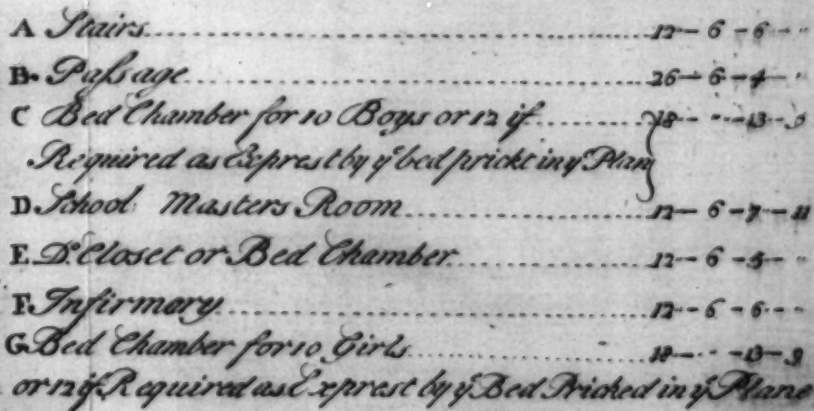 A Stairs ........ 12 - 6 - 6 - "
B. Paſsage ........ 26 - 6 - 4 - "
C Bed Chamber for 10 Boys or 12 if ........ 18 - " - 13 - 3
Required as Exprest by yͤ bed prickt in yͤ Plan
D School Masters Room ........ 12 - 6 - 7 - 11
E Dͦ. Closet or Bed Chamber ........ 12 - 6 - 5 - "
F Infirmary ........ 12 - 6 - 6 - "
G Bed Chamber for 10 Girls ........ 18 - " - 13 - 3
or 12 if Required as Exprest by yͤ Bed Pricked in yͤ Plane